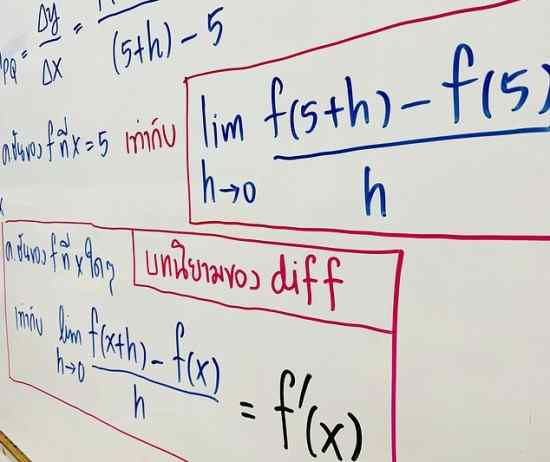 PQ = Δy/Δx = /((5+h) - 5)
ค.ชันของ f ที่ x = 5 เท่ากับ lim h→0 (f(5+h) - f(5))/h
ค.ชันของ f ที่ x ใดๆ
บทนิยามของ diff
เท่ากับ lim h→0 (f(x+h) - f(x))/h = f'(x)